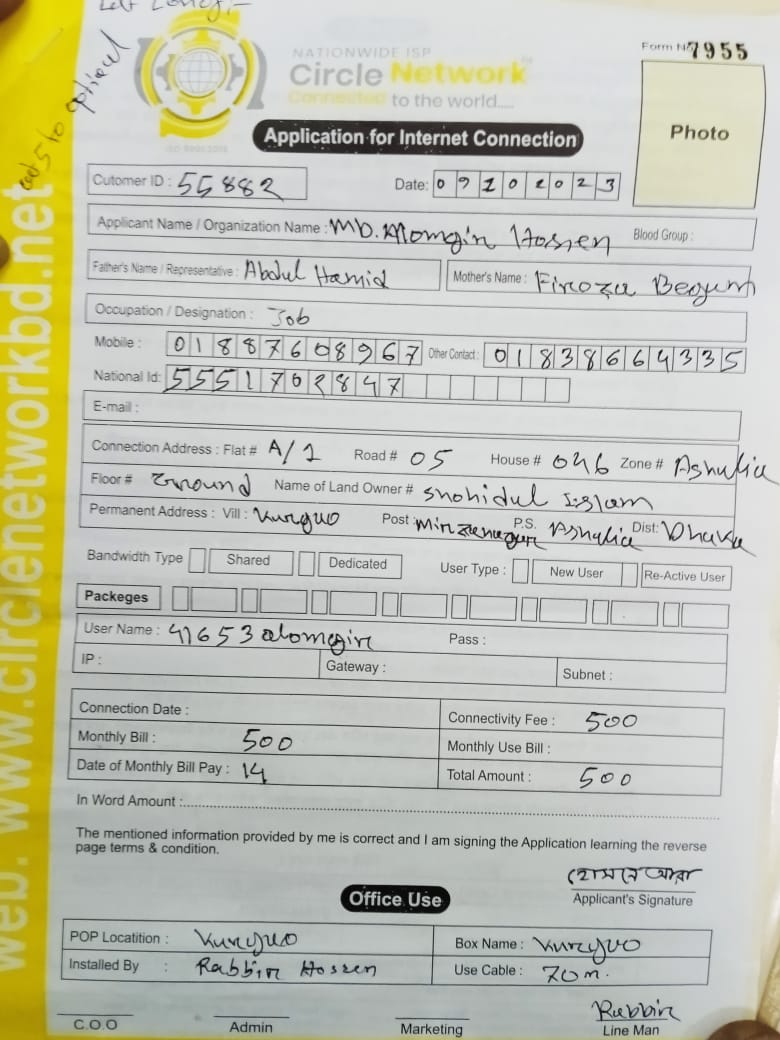 to optical
NATIONWIDE ISP
Circle Network
Connected to the world....
ISO 9001:2015
Form No 7955
Application for Internet Connection
Photo
Cutomer ID : 55882
Date: 09102023
Applicant Name / Organization Name : MD. Alomgin Hossen Blood Group :
Father's Name / Representative : Abdul Hamid Mother's Name : Firoza Begum
Occupation / Designation : Job
Mobile : 01887608967 Other Contact : 01838664335
National Id: 5551702847
E-mail :
Connection Address : Flat # A/1 Road # 05 House # 046 Zone # Ashulia
Floor # Ground Name of Land Owner # Shohidul Islam
Permanent Address : Vill : Post : P.S. Ashulia Dist: Dhaka
Bandwidth Type Shared Dedicated User Type : New User Re-Active User
Packeges
User Name : 41653alomgir Pass :
IP : Gateway : Subnet :
Connection Date : Connectivity Fee : 500
Monthly Bill : 500 Monthly Use Bill :
Date of Monthly Bill Pay : 14 Total Amount : 500
In Word Amount :
The mentioned information provided by me is correct and I am signing the Application learning the reverse
page terms & condition.
হোসনে আরা
Applicant's Signature
Office Use
POP Locatition : Box Name :
Installed By : Rabbir Hossen Use Cable : 70m.
Rabbir
C.O.O Admin Marketing Line Man
web: www.circlenetworkbd.net